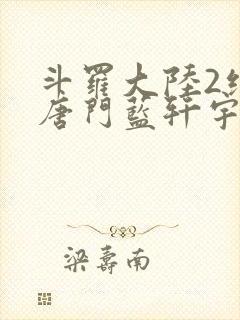 斗羅大陸2
唐門藍軒宇
梁壽南